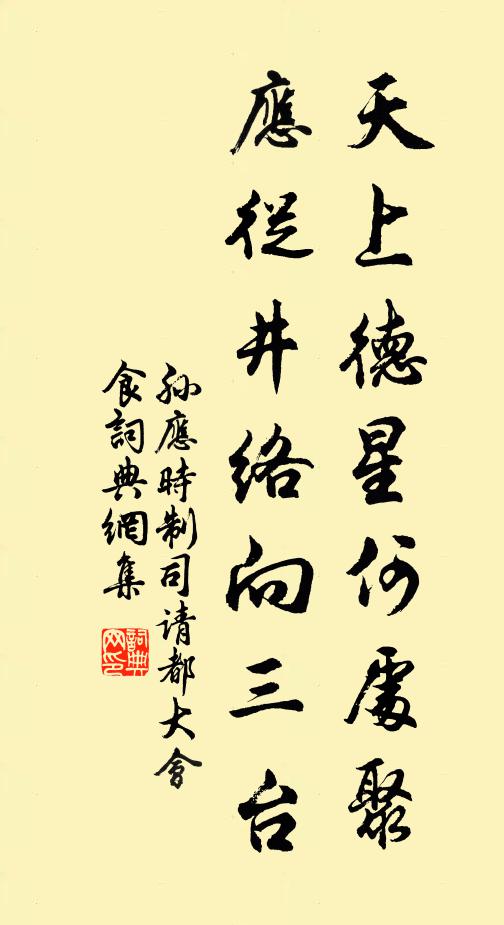 天上德星何處聚
應從井络向三台
孙應時制司请都大會
食詞典網集
詞典网印